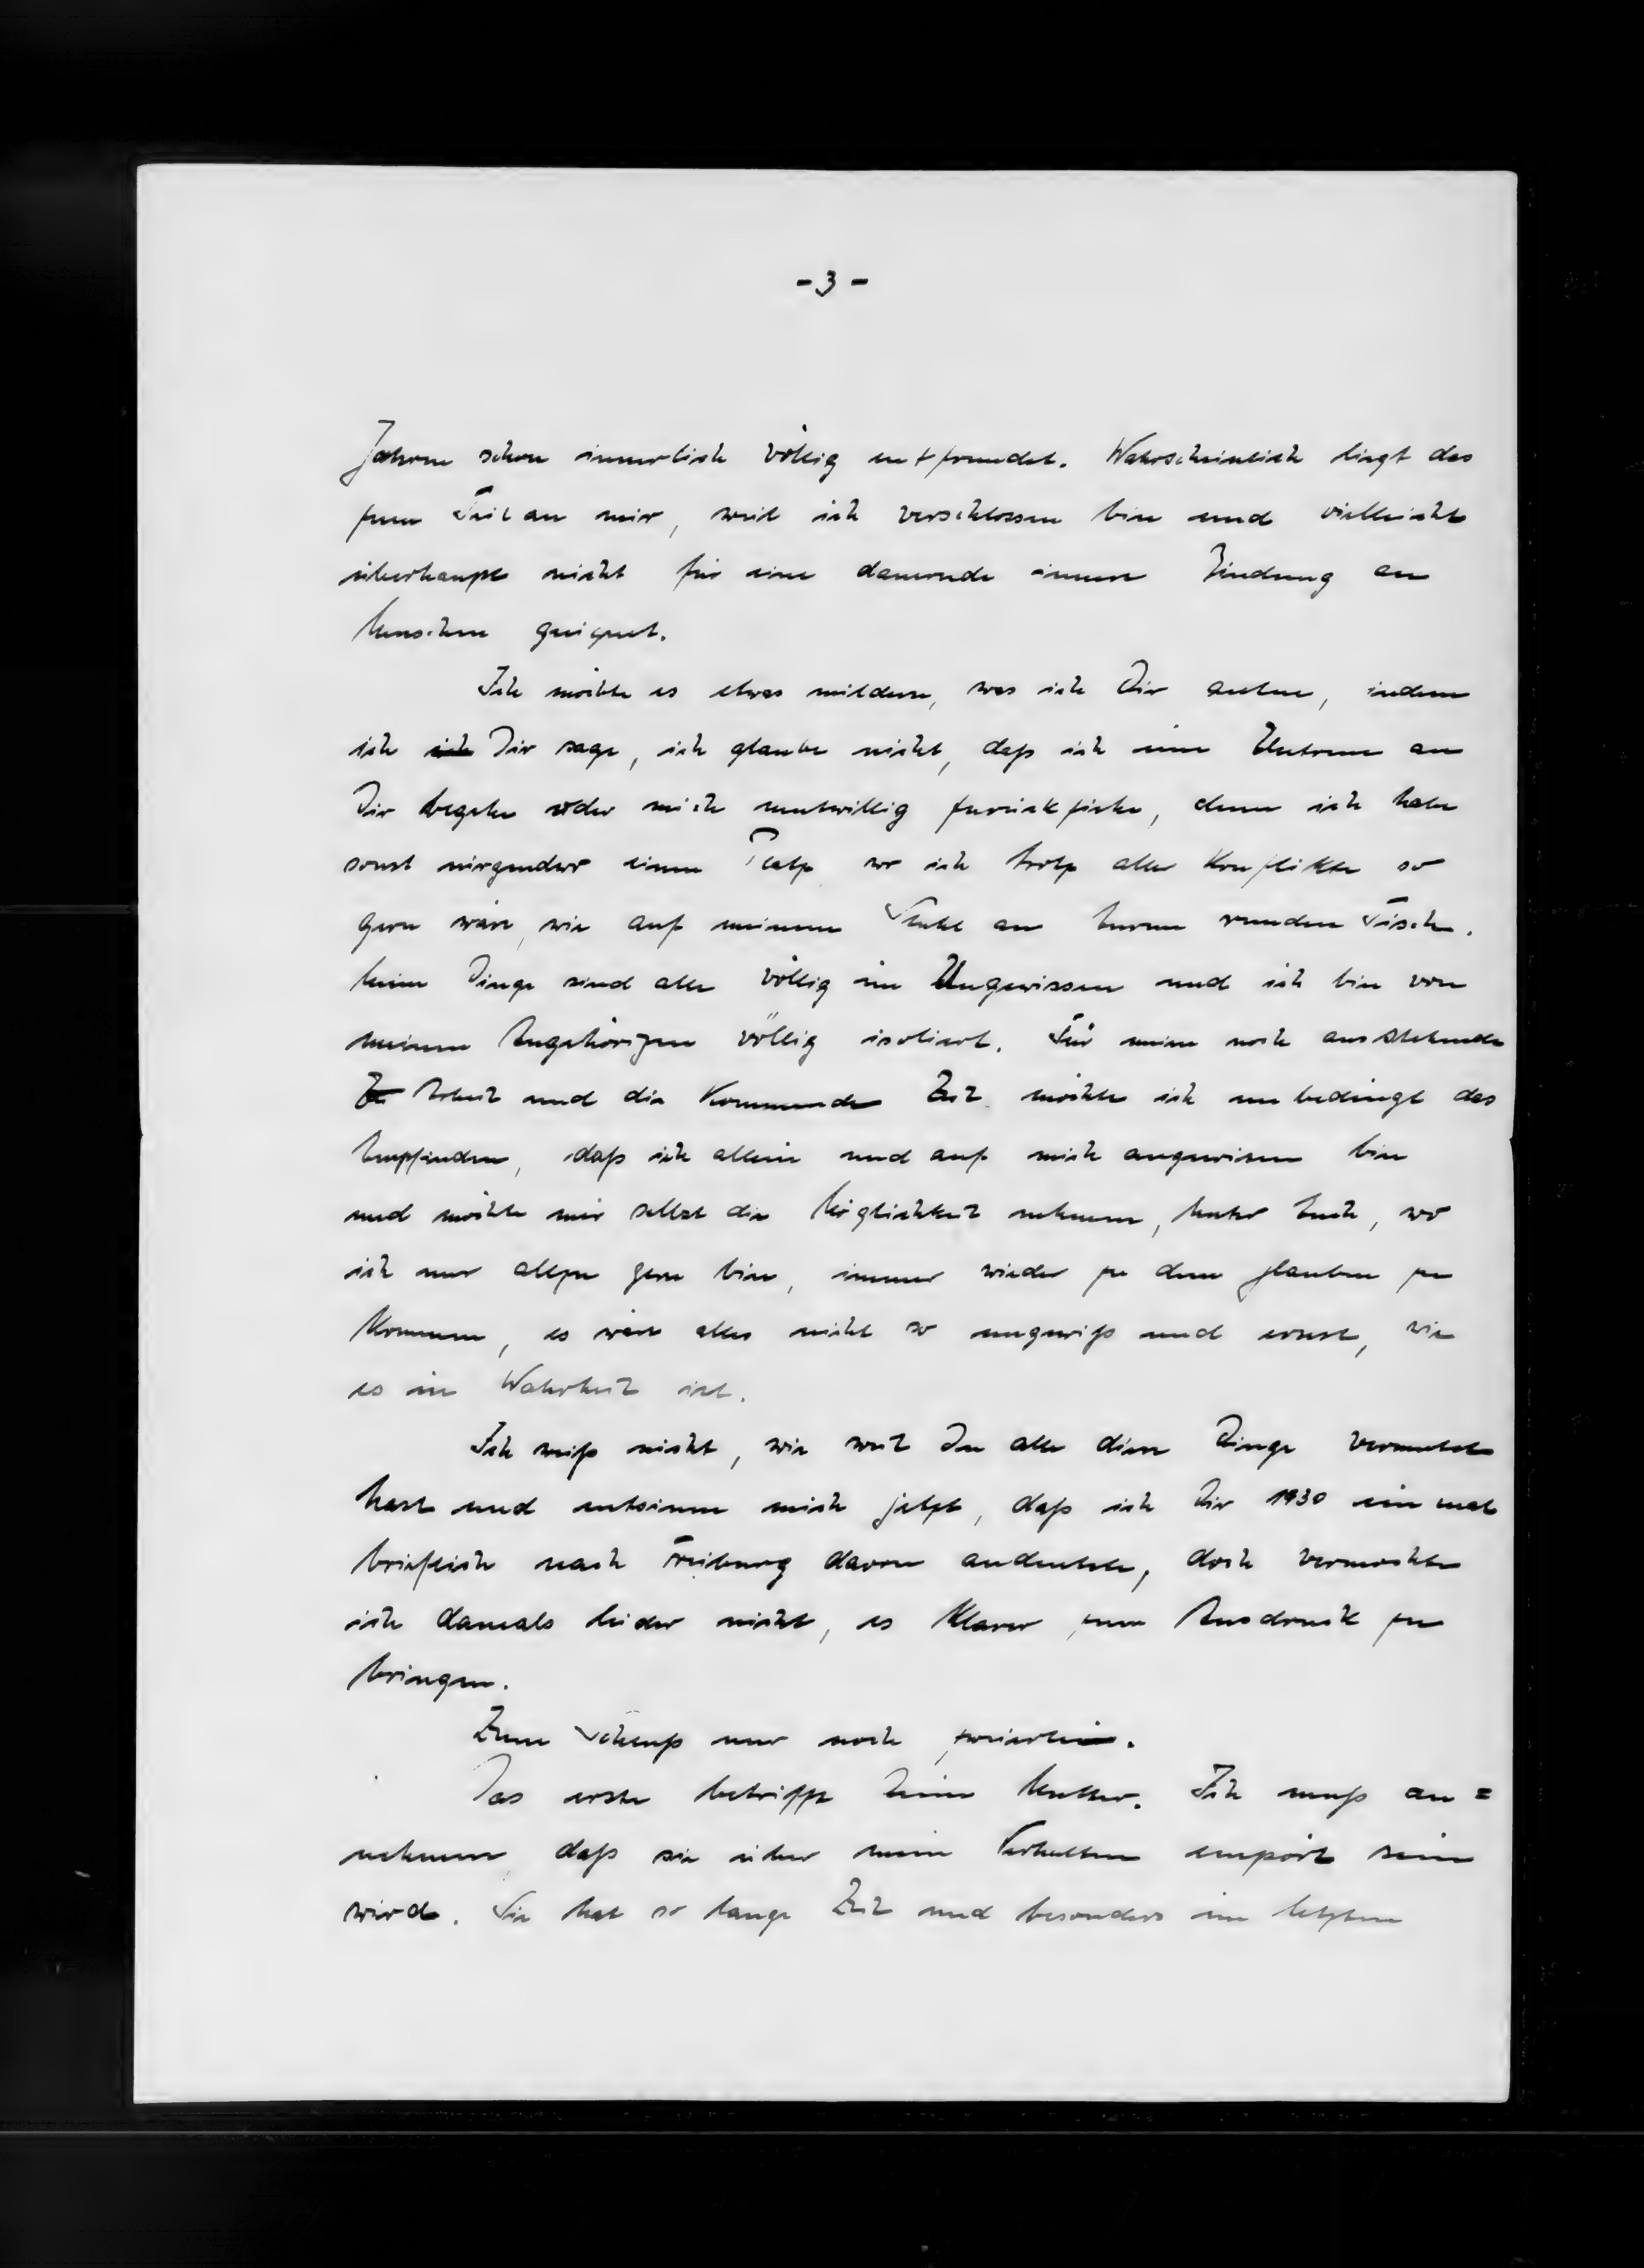 - 3 -
Jahren schon innerlich völlig entfremdet. Wahrscheinlich liegt das
zum Teil an mir, weil ich verschlossen bin und vielleicht
überhaupt nicht für eine dauernde innere Bindung an
Menschen geeignet.
Ich möchte es etwas mildern, was ich Dir antue, indem
ich ich Dir sage, ich glaube nicht, daß ich eine Untreue an
Dir begehe oder mich mutwillig zurückziehe, denn ich habe
sonst nirgendwo einen Platz wo ich trotz aller Konflikte so
gern wäre, wie auf meinem Stuhl an Eurem runden Tisch.
Meine Dinge sind alle völlig im Ungewissen und ich bin von
meinen Angehörigen völlig isoliert. Für meine noch ausstehende
Arbeit und die kommende Zeit möchte ich unbedingt das
Empfinden, daß ich allein und auf mich angewiesen bin
und möchte mir selbst die Möglichkeit nehmen, unter Euch, wo
ich nur allzu gern bin, immer wieder zu dem glauben zu
kommen, es wäre alles nicht so ungewiß und ernst, wie
es in Wahrheit ist.
Ich weiß nicht, wie weit Du alle diese Dinge vermutet
hast und entsinne mich jetzt, daß ich Dir 1930 einmal
brieflich nach Freiburg davon andeutete, doch vermochte
ich damals leider nicht, es klarer zum Ausdruck zu
bringen.
Zum Schluß nur noch zweierlei.
Das erste betrifft Deine Mutter. Ich muß an=
nehmen daß sie über mein Verhalten empört sein
wird. Sie hat so lange Zeit und besonders im letzten